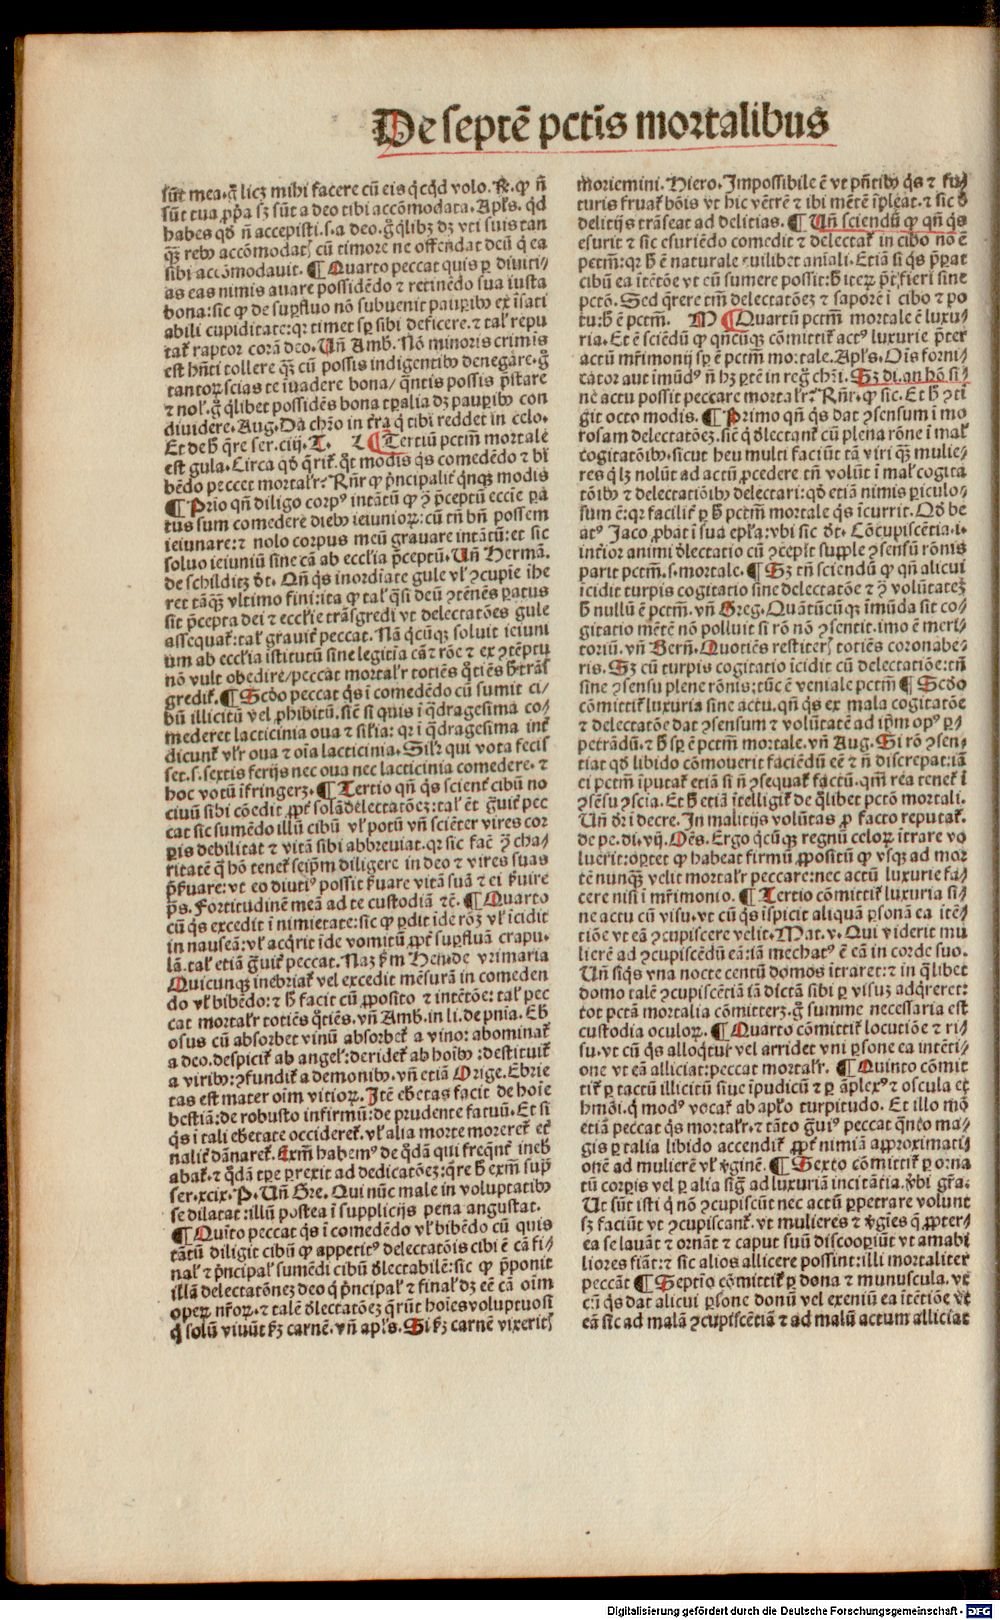 De septē pctīs mortalibus
sūt mea. ḡ licz mihi facere cū eis q̇cq̇d volo. ꝶ. ꝙ nō
sūt tua ꝓp̄a sz sūt a deo tibi accōmodata. Apl̄s. qd
habes qđ nō accepisti. s. a deo. ḡ q̇libz dz vti suis tan
qꝫ rebꝰ accōmodatꝭ cū timore ne offendat deū q̇ ea
sibi accōmodauit. ¶ Quarto peccat quis ꝑ diuiti⸗
as eas nimis auare possidēdo ⁊ retinēdo sua iusta
bona: sic ꝙ de suꝑfluo nō subuenit pauꝑibꝰ ex īsati
abili cupiditate: qꝛ timet sꝑ sibi deficere. ⁊ tal̄ repu
tat̄ raptor corā deo. Uñ Amb. Nō minoris crimis
est hñti tollere qꝫ cū possis indigentibꝰ denegare. ḡ
tantoꝝ scias te īuadere bona / q̄ntis possis p̄stare
⁊ nol̄. ḡ q̇libet possidēs bona tꝑalia dz pauꝑibꝰ con
diuidere. Aug. Da chr̄o in tr̄a q̇ tibi reddet in celo.
Et de h̄ q̄re ser. ciij. T. L ¶ Tertiū pctm̄ mortale
est gula. Circa qđ q̄rit̄. q̇t modis q̇s comedēdo ⁊ bi
bēdo peccet mortal̄r? Rn̄r ꝙ p̄ncipalit̄ q̇nqꝫ modis
¶ Prīo qn̄ diligo corpꝰ intātū ꝙ ꝯ̄ p̄ceptū eccie ꝑa
tus sum comedere diebꝰ ieiunioꝝ: cū tn̄ bn̄ possem
ieiunare: ⁊ nolo corpus meū grauare intātū: et sic
soluo ieiuniū sine cā ab ecclīa p̄ceptū. Uñ Hermā.
de schilditz dt. Qn̄ q̇s inordīate gule vl̄ ꝯcupīe īhe
ret tāqꝫ vltimo fini: ita ꝙ tal̄ q̇si deū ꝯtēnēs ꝑatus
sit p̄cepta dei ⁊ ecclīe trāsgredi vt delectatōes gule
assequat̄: tal̄ grauit̄ peccat. Nā q̇cūqꝫ soluit ieiuni
um ab ecclīa istitutū sine legitīa cā ⁊ rōe ⁊ ex ꝯtēptu
nō vult obedire / peccat mortal̄r totiēs q̇tiēs h̄ trās
gredit̄. ¶ Scđo peccat q̇s ī comedēdo cū sumit ci⸗
bū illicitū vel ꝓhibitū. sic̄ si quis ī q̄dragesima co⸗
mederet lacticinia oua ⁊ sil̄ia: qꝛ ī q̄dragesima int̄
dicunt̄ vl̄r oua ⁊ oīa lacticinia. Sil̄r qui vota fecis
set. s. sextis ferijs nec oua nec lacticinia comedere. ⁊
hoc votū īfringerꝫ. ¶ Tertio qn̄ q̇s scient̄ cibū no
ciuū sibi cōedit ꝓpt̄ solā delectatōeꝫ: tal̄ ēt g̈uit̄ pec
cat sic sumēdo illū cibū vl̄ potū vn̄ sciēter vires cor
ꝑis debilitat ⁊ vitā sibi abbreuiat. qꝛ sic facē ꝯ̄ cha⸗
ritatē q̇ hō tenet̄ seip̄m diligere in deo ⁊ vires suas
p̄ẜuare: vt eo diutiꝰ possit ẜuare vitā suā ⁊ ei ẜuire
p̄s. Fortitudinē meā ad te custodiā ⁊c̄. ¶ Quarto
cū q̇s excedit ī nimietate: sic ꝙ ꝑdit īde rōꝫ vl̄ īcidit
in nauseā: vl̄ acq̇rit īde vomitū ꝓpt̄ suꝑfluā crapu⸗
lā. tal̄ etiā g̈uit̄ peccat. Naꝫ ẜm Hen. de vrimaria
Quicunqꝫ inebriat̄ vel excedit mēsurā in comeden
do vl̄ bibēdo: ⁊ h̄ facit cū ꝓposito ⁊ intētōe: tal̄ pec
cat mortal̄r totiēs q̇tiēs. vn̄ Amb. in li. de pn̄ia. Eb
osus cū absorbet vinū absorbet̄ a vino: abominat̄
a deo. despicit̄ ab angel̄: deridet̄ ab hoībꝰ: destituit̄
a viribꝰ: ꝯfundit̄ a demonibꝰ. vn̄ etiā Orige. Ebrie
tas est mater oīm vitioꝝ. Itē eb̄etas facit de hoīe
bestiā: de robusto infirmū: de prudente fatuū. Et si
q̇s ī tali eb̄etate occideret̄. vl̄ alia morte moreret̄ et̄
nalit̄ dānaret̄. Exm̄ habemꝰ de q̇dā qui freq̄nt̄ ineb̄
abat̄. ⁊ q̇dā tꝑe ꝑrexit ad dedicatōeꝫ: q̄re h̄ exm̄ supͣ
ser. xcix. P. Uñ Gre. Qui nūc male in voluptatibꝰ
se dilatat: illū postea ī supplicijs pena angustat.
¶ Quīto peccat q̇s ī comedēdo vl̄ bibēdo cū quis
tātū diligit cibū ꝙ appetitꝰ delectatōis cibi ē cā fi⸗
nal̄ ⁊ p̄ncipal̄ sumēdi cibū đlectabilē: sic ꝙ p̄ponit
illā delectatōneꝫ deo q̇ p̄ncipal̄ ⁊ final̄ dz eē cā oīm
oꝑeꝝ nr̄oꝝ. ⁊ talē đlectatōeꝫ q̇rūt hoīes voluptuosi
q̇ solū viuūt ẜꝫ carnē. vn̄ apl̄s. Si ẜꝫ carnē vixeritꝭ
moriemini. Hiero. Impossibile ē vt pn̄tibꝰ q̇s ⁊ fu⸗
turis fruat̄ bōis vt hic ventrē ⁊ ibi mētē īpleat. ⁊ sic đ
delitijs trāseat ad delitias. ¶ Uñ sciendū ꝙ qn̄ q̇s
esurit ⁊ sic esuriēdo comedit ⁊ delectat̄ in cibo nō ē
pctm̄: qꝛ h̄ ē naturale cuilibet aīali. Etiā si q̇s p̄parat
cibū ea ītētōe vt cū sumere possit: h̄ iteꝝ pōt fieri sine
pctō. Sed q̄rere tm̄ delectatōeꝫ ⁊ saporē ī cibo ⁊ po
tu: h̄ ē pctm̄. M ¶ Quartū pctm̄ mortale ē luxu⸗
ria. Et ē sciēdū ꝙ qn̄cūqꝫ cōmittit̄ actꝰ luxurie p̄ter
actū mr̄imonij sꝑ ē pctm̄ mortale. Apl̄s. Oīs forni⸗
cator aut īmūdꝰ nō hz ꝑtē in reg̈ chr̄i. Sz di. an hō si⸗
ne actu possit peccare mortal̄r? Rn̄r. ꝙ sic. Et h̄ ꝯti
git octo modis. ¶ Primo qn̄ q̇s dat ꝯsensum ī mo
rosam delectatōeꝫ. sic̄ q̇ đlectant̄ cū plena rōne ī mal̄
cogitatōibꝰ. sicut heu multi faciūt tā viri qꝫ mulie⸗
res q̇ lꝫ nolūt ad actū ꝓcedere tn̄ volūt ī mal̄ cogita
tōibꝰ ⁊ delectatiōibꝰ delectari: qđ etiā nimis ꝑiculo⸗
sum ē: qꝛ facilit̄ ꝑ h̄ pctm̄ mortale q̇s īcurrit. Qđ be
atꝰ Jaco ꝓbat ī sua epl̄a: vbi sic dt. Cōcupiscētia. i.
int̄ior animi đlectatio cū ꝯcepīt supple ꝯsensū rōnis
parit pctm̄. s. mortale. ¶ Sz tn̄ sciendū ꝙ qn̄ alicui
īcidit turpis cogitatio sine delectatōe ⁊ ꝯ̄ volūtatēꝫ
h̄ nullū ē pctm̄. vn̄ Greg. Quātūcūqꝫ īmūda sit co⸗
gitatio mētē nō polluit si rō nō ꝯsentit. imo ē meri⸗
toriū. vn̄ Bern̄. Quotiēs restiterꝭ totiēs coronabe⸗
ris. Sz cū turpis cogitatio īcidit cū delectatiōe: tn̄
sine ꝯsensu plene rōnis: tūc ē veniale pctm̄ ¶ Scđo
cōmittit̄ luxuria sine actu. qn̄ q̇s ex mala cogitatōe
⁊ delectatōe dat ꝯsensum ⁊ volūtatē ad ip̄m opꝰ ꝑ⸗
petrādū. ⁊ h̄ sꝑ ē pctm̄ mortale. vn̄ Aug. Si rō ꝯsen⸗
tiat qđ libido cōmouerit faciēdū eē ⁊ nō discrepat: iā
ei pctm̄ īputat̄ etiā si nō ꝯsequat̄ factū. qm̄ rea tenet̄ ī
ꝯsēsu ꝯscīa. Et h̄ etiā ītelligit̄ de q̇libet pctō mortali.
Uñ dr̄ ī decre. In malitijs volūtas ꝓ facto reputat̄.
de pe. di. vij. Oēs. Ergo q̇cūqꝫ regnū celoꝝ ītrare vo
luerit: oꝑtet ꝙ habeat firmū ꝓpositū ꝙ vsqꝫ ad mor
tē nunqꝫ velit mortal̄r peccare: nec actū luxurie fa⸗
cere nisi ī mr̄imonio. ¶ Tertio cōmittit̄ luxuria si⸗
ne actu cū visu. vt cū q̇s īspicit aliquā ꝑsonā ea ītē⸗
tiōe vt eā ꝯcupiscere velit. Mat. v. Qui viderit mu
lierē ad ꝯcupiscēdū eā: iā mechatꝰ ē eā in corde suo.
Uñ siq̇s vna nocte centū domos ītraret: ⁊ in q̇libet
domo talē ꝯcupiscētiā iā dictā sibi ꝑ visuꝫ adq̇reret:
tot pctā mortalia cōmitterꝫ. ḡ summe necessaria est
custodia oculoꝝ. ¶ Quarto cōmittit̄ locutiōe ⁊ ri⸗
su. vt cū q̇s alloq̇tur vel arridet vni ꝑsone ea intēti⸗
one vt eā alliciat: peccat mortal̄r. ¶ Quinto cōmit
tit̄ ꝑ tactū illicitū siue īpudicū ⁊ ꝑ āplexꝰ ⁊ oscula et
hmōi. q̇ modꝰ vocat̄ ab apl̄o turpitudo. Et illo mō
etiā peccat q̇s mortal̄r. ⁊ tāto g̈uiꝰ peccat q̄nto ma⸗
gis ꝑ talia libido accendit̄ ꝓpt̄ nimiā approximati
onē ad mulierē vl̄ v̄ginē. ¶ Sexto cōmittit̄ ꝑ orna
tū corꝑis vel ꝑ alia sig̈ ad luxuriā incitātia. v̄bi gr̄a.
Ut sūt isti q̇ nō ꝯcupiscūt nec actū ꝑpetrare volunt
sz faciūt vt ꝯcupiscant̄. vt mulieres ⁊ v̄gīes q̄ ꝓpter⸗
ea se lauāt ⁊ ornāt ⁊ caput suū discooꝑiūt vt amabi
liores fiāt: ⁊ sic alios allicere possint: illi mortaliter
peccāt ¶ Septīo cōmittit̄ ꝑ dona ⁊ munuscula. vt
cū q̇s dat alicui ꝑsone donū vel exeniū ea ītētiōe vt
eā sic ad malā ꝯcupiscētiā ⁊ ad malū actum alliciat
Digitalisierung gefördert durch die Deutsche Forschungsgemeinschaft - DFG